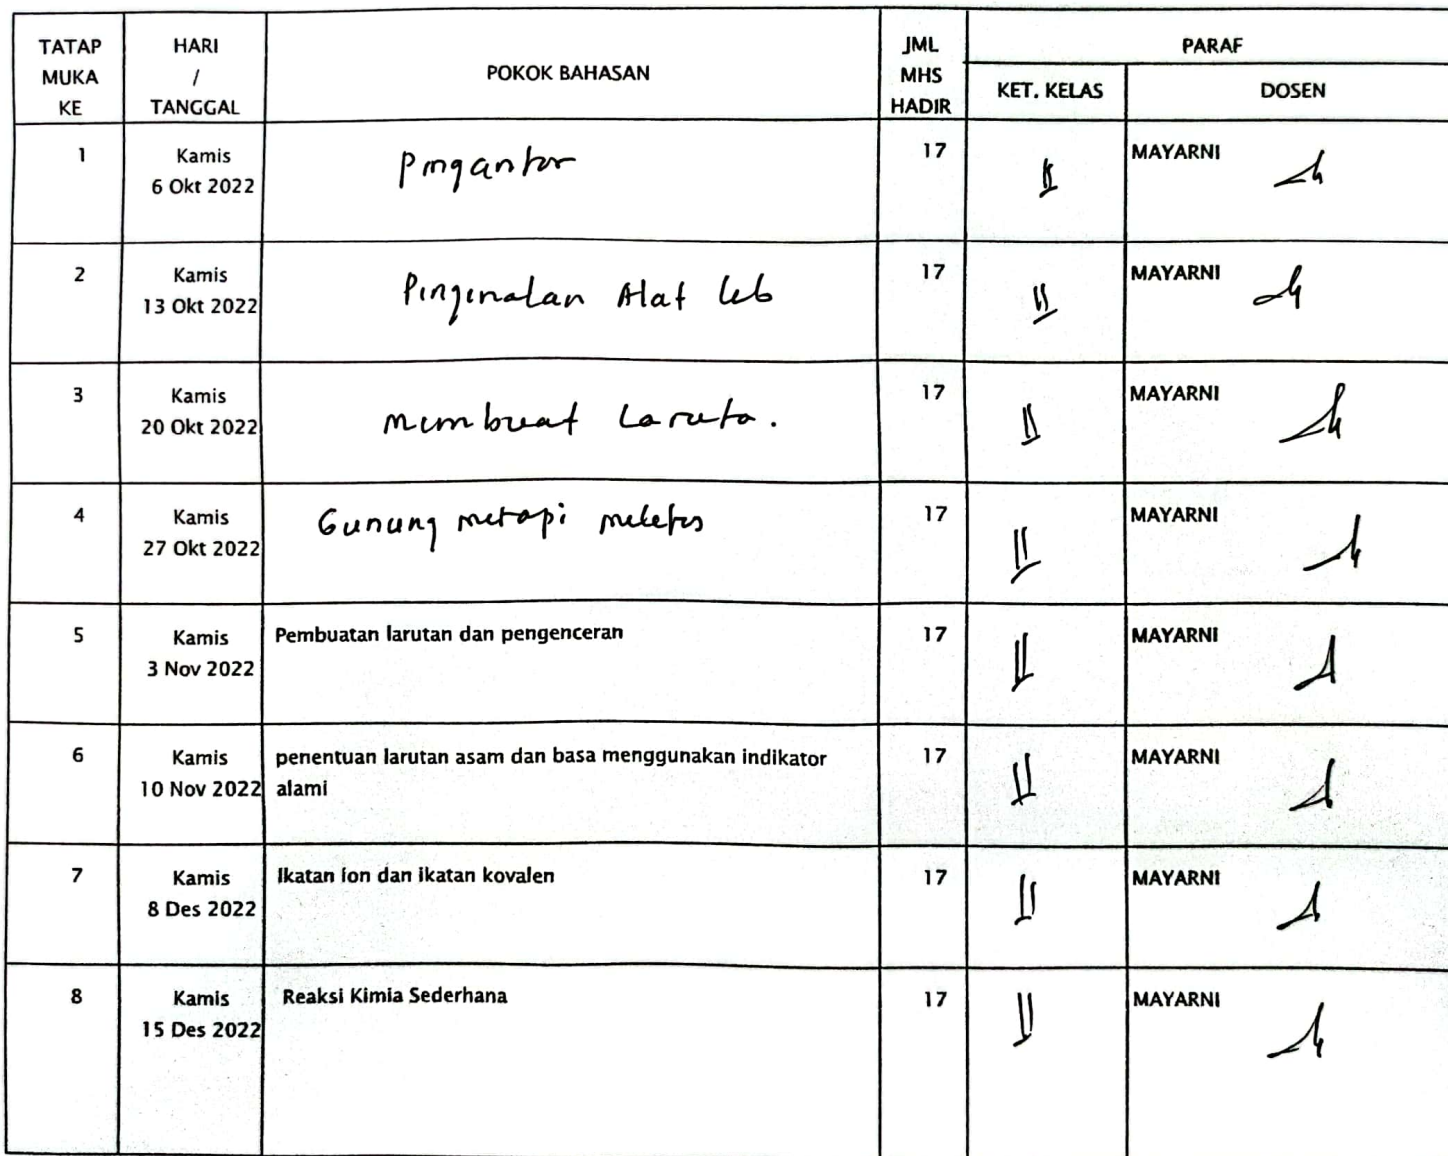 TATAP MUKA KE
HARI / TANGGAL
POKOK BAHASAN
JML MHS HADIR
PARAF
KET. KELAS
DOSEN
1
Kamis
6 Okt 2022
Pengantar
17
MAYARNI
2
Kamis
13 Okt 2022
Pengenalan Alat Lab
17
MAYARNI
3
Kamis
20 Okt 2022
Membuat Laruta.
17
MAYARNI
4
Kamis
27 Okt 2022
Gunung merapi meletus
17
MAYARNI
5
Kamis
3 Nov 2022
Pembuatan larutan dan pengenceran
17
MAYARNI
6
Kamis
10 Nov 2022
penentuan larutan asam dan basa menggunakan indikator
alami
17
MAYARNI
7
Kamis
8 Des 2022
Ikatan ion dan ikatan kovalen
17
MAYARNI
8
Kamis
15 Des 2022
Reaksi Kimia Sederhana
17
MAYARNI